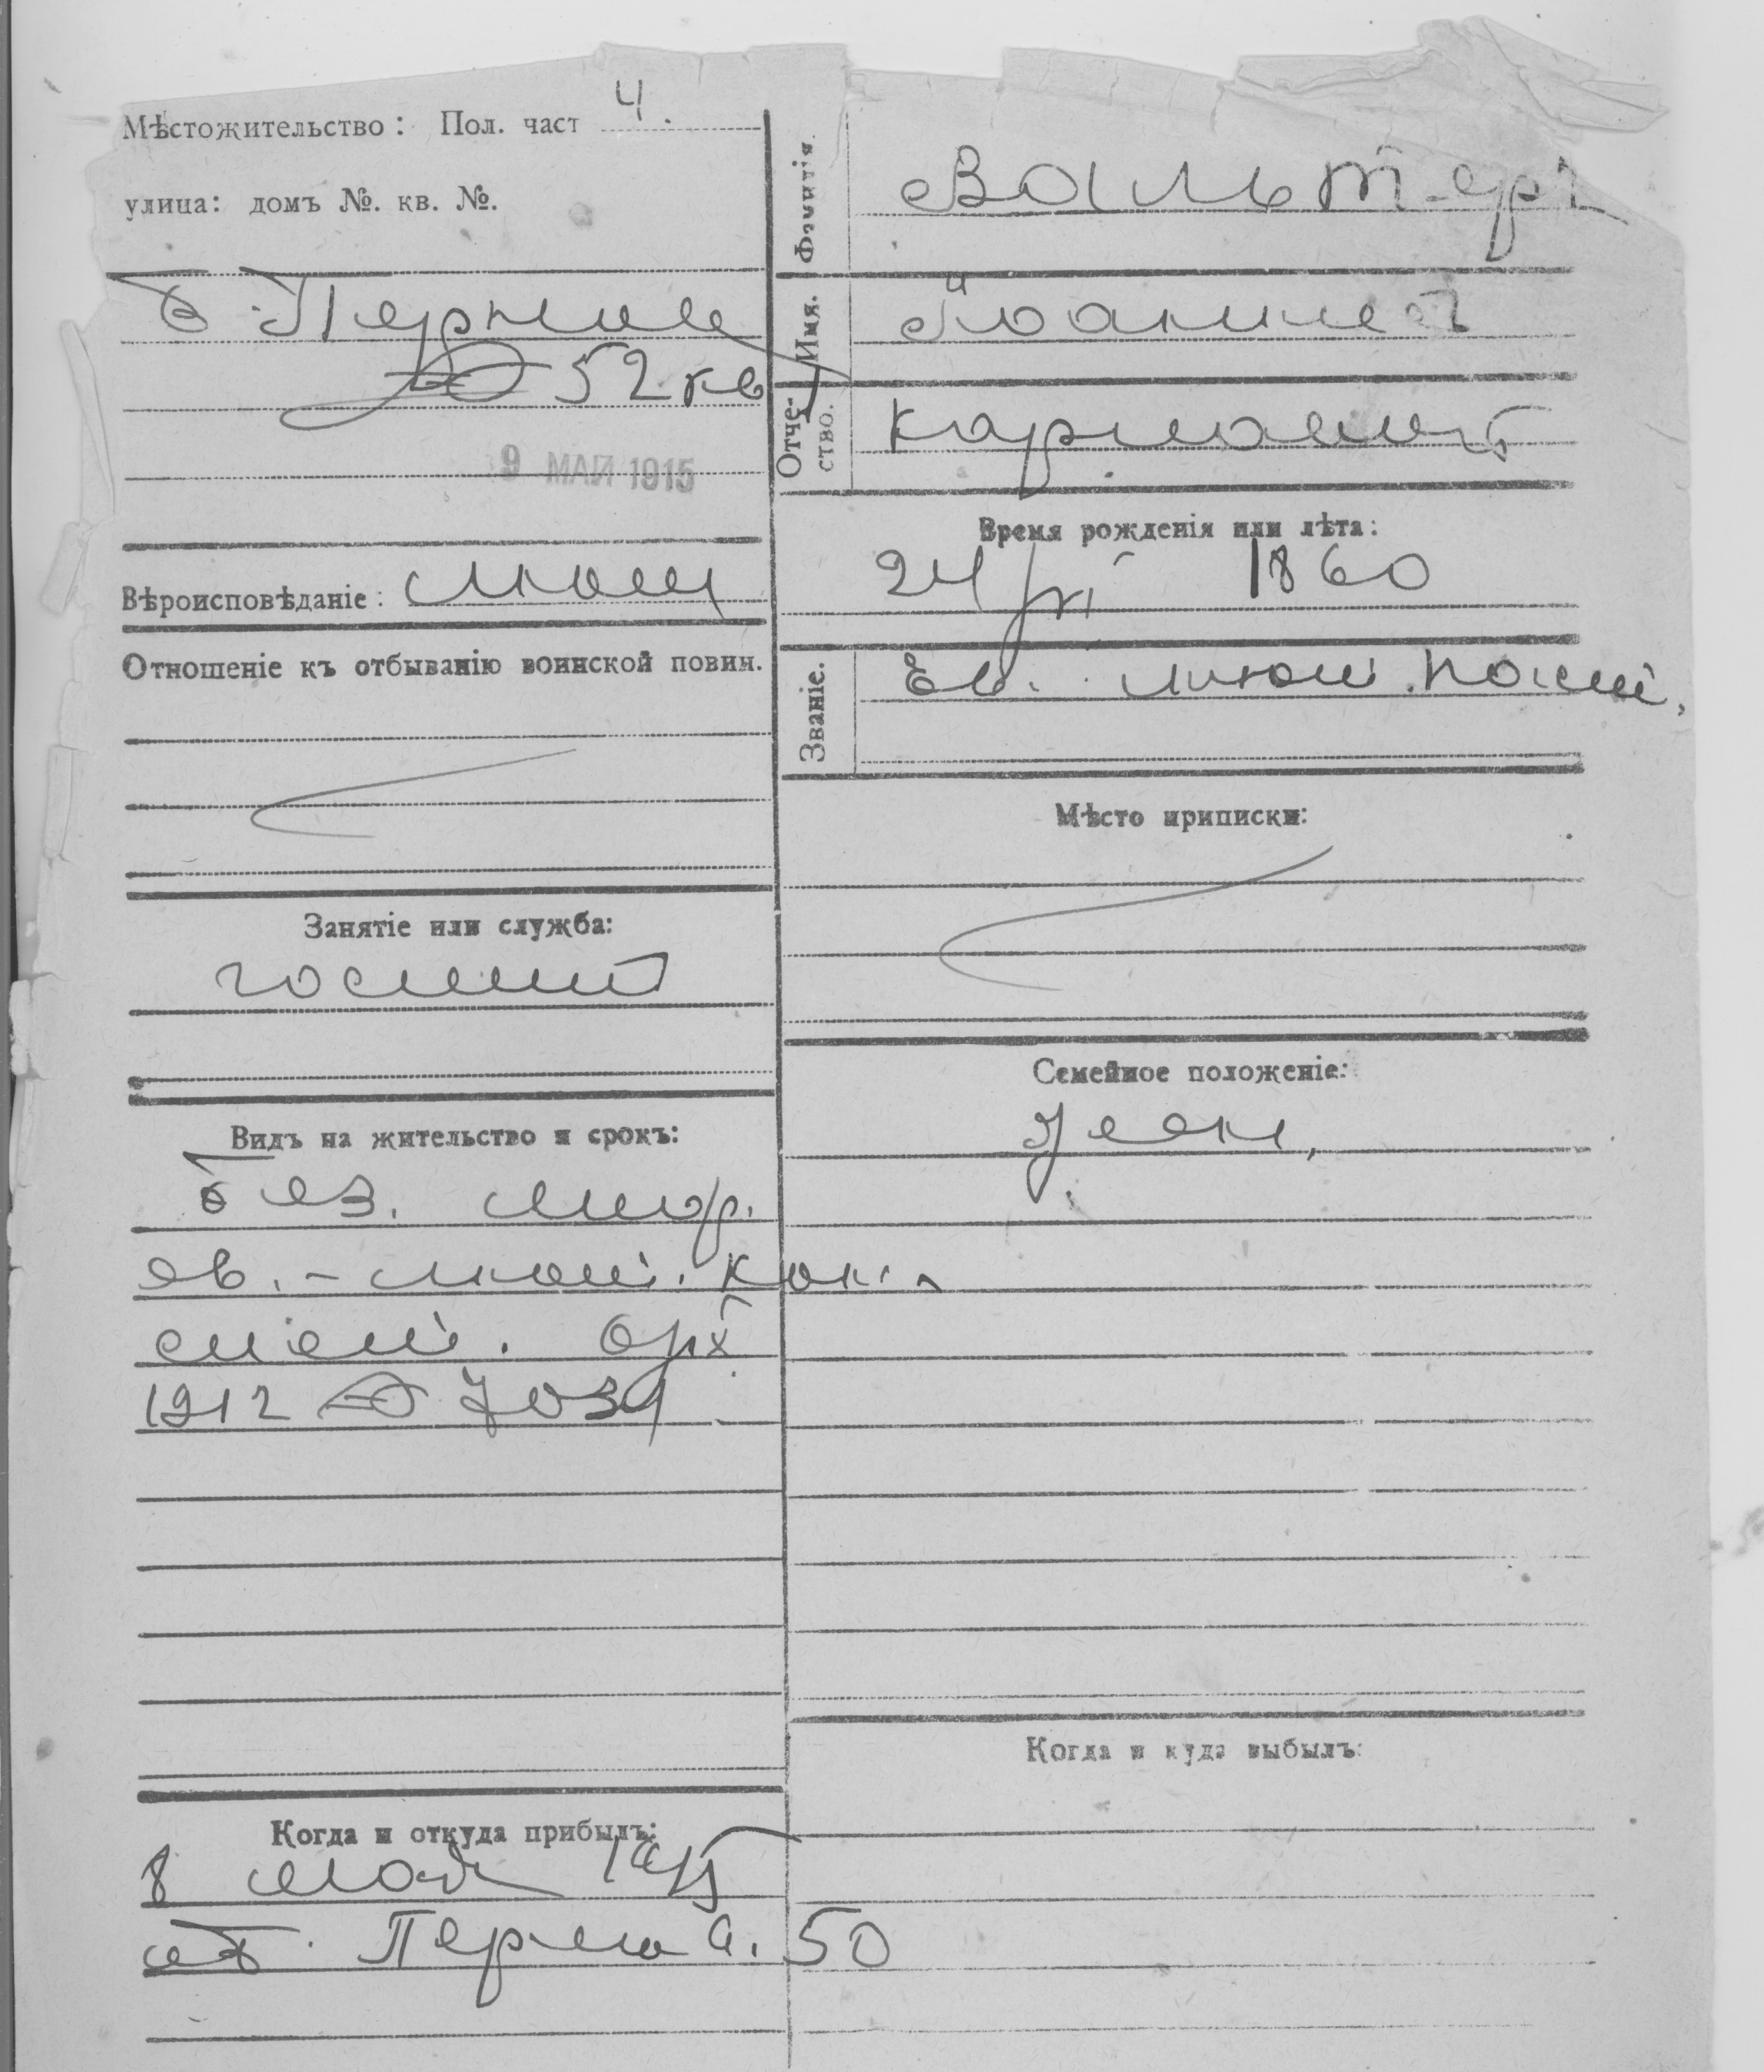 Мѣстожительство: Пол. част 4.
улица: домъ №. кв. №.
Б. Перная
№ 52 кв
9 МАЙ 1915
Вѣроисповѣданіе: лют
Отношеніе къ отбыванію воинской повин.
Занятіе или служба:
Видъ на жительство и срокъ:
Без. 
ев. - лют. 
1912 № 7034
Когда и откуда прибылъ:
8 мая 1915
50
Фамилія. Вальтеръ
Имя. Іоаннесъ
Отчество.
Время рожденія или лѣта:
24/VI 1860
Званіе. Ев. лют. паст.
Мѣсто приписки:
Семейное положеніе:
жен.
Когда и куда выбылъ: